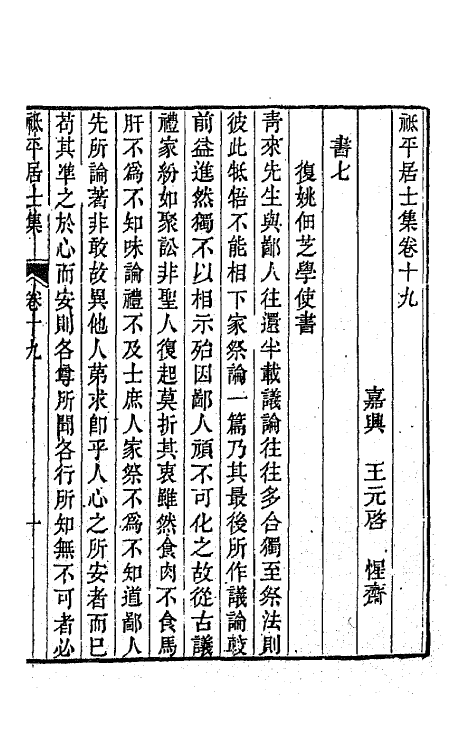 祗平居士集卷十九
嘉興　王元啓　惺齋
書七
復姚佃芝學使書
靑來先生與鄙人往還半載議論往往多合獨至祭法則
彼此牴牾不能相下家祭論一篇乃其最後所作議論較
前益進然獨不以相示殆因鄙人頑不可化之故從古議
禮家紛如聚訟非聖人復起莫折其衷雖然食肉不食馬
肝不爲不知味論禮不及士庶人家祭不爲不知道鄙人
先所論著非敢故異他人第求卽乎人心之所安者而已
苟其準之於心而安則各尊所聞各行所知無不可者必
祗平居士集　卷十九　一